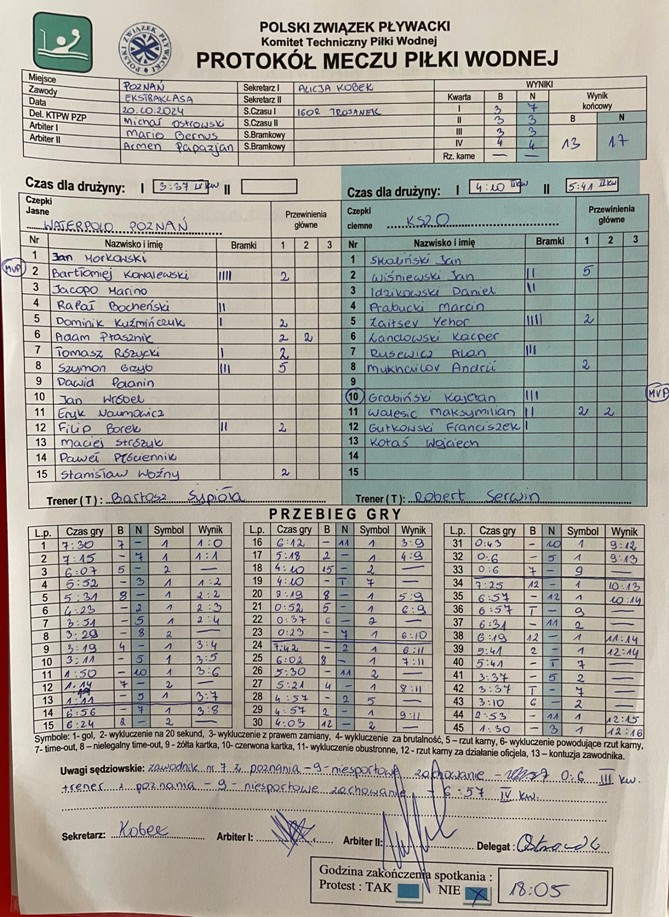 POLSKI ZWIĄZEK PŁYWACKI
Komitet Techniczny Piłki Wodnej
PROTOKÓŁ MECZU PIŁKI WODNEJ
POLSKI ZWIĄZEK PŁYWACKI
Miejsce POZNAŃ Sekretarz I ALICJA KOBEK WYNIKI
Zawody EKSTRAKLASA Sekretarz II Kwarta B N Wynik końcowy
Data 20.10.2024 S.Czasu I IGOR TROJANEK I 3 7 B N
Del. KTPW PZP Michał Ostrowski S.Czasu II II 3 3
Arbiter I Mario Bernus S.Bramkowy III 3 3 13 17
Arbiter II Armen Papazjan S.Bramkowy IV 4 4
Rz. karne — —
Czas dla drużyny: I 3:37 IV KW II
Czas dla drużyny: I 4:10 II KW II 5:41 IV KW
Czepki Jasne WATERPOLO POZNAŃ Przewinienia główne
Nr Nazwisko i imię Bramki 1 2 3
1 Jan
MVP 2 Bartłomiej Kowalewski IIII 2
3 Jacopo Marino
4 Rafał Bocheński II
5 Dominik Kuźmińczuk I 2
6 Adam Ptasznik 2 2
7 Tomasz Różycki I 2
8 Szymon Gzyb III 5
9 Dawid Polanin
10 Jan Wróbel
11 Eryk Naumowicz
12 Filip Borek II 2
13 Maciej Stróżyk
14 Paweł Pściennik
15 Stanisław Woźny 2
Trener ( T ) : Bartosz Sypioła
Czepki ciemne KSZO Przewinienia główne
Nr Nazwisko i imię Bramki 1 2 3
1 Skaliński Jan
2 Wiśniewski Jan II 5
3 Idzikowski Daniel II
4 Arabucki Marcin
5 Zaitsev Yehor IIII 2
6 Landowski Kacper
7 Rusewicz Alan III
8 Mykhailov Andrii 2
9
10 Grabiński Kajetan III MVP
11 Walesic Maksymilian II 2 2
12 Gutkowski Franciszek I
13 Kotaś Wojciech
14
15
Trener ( T ) : Robert Serwin
PRZEBIEG GRY
L.p. Czas gry B N Symbol Wynik
1 7:30 7 - 1 1:0
2 7:15 - 7 1 1:1
3 6:07 5 - 2 —
4 5:52 - 3 1 1:2
5 5:31 8 - 1 2:2
6 4:23 - 2 1 2:3
7 3:51 - 5 1 2:4
8 3:29 - 8 2 —
9 3:19 4 - 1 3:4
10 3:11 - 5 1 3:5
11 1:50 - 10 1 3:6
12 1:14 7 - 2 —
13 1:11 - 5 1 3:7
14 6:56 - 7 1 3:8
15 6:24 2 - 2 —
L.p. Czas gry B N Symbol Wynik
16 6:12 - 11 1 3:9
17 5:18 2 - 1 4:9
18 4:10 15 - 2 —
19 4:10 - T 7 —
20 2:19 8 - 1 5:9
21 0:52 5 - 1 6:9
22 0:37 6 - 2 —
23 0:23 - 7 1 6:10
24 7:42 - 2 1 6:11
25 6:02 8 - 1 7:11
26 5:30 - 11 2
27 5:21 4 - 1 8:11
28 4:57 - 2 5
29 4:57 2 - 1 9:11
30 4:03 12 - 2
L.p. Czas gry B N Symbol Wynik
31 0:43 - 10 1 9:12
32 0:6 - 5 1 9:13
33 0:6 7 - 9 —
34 7:25 12 - 1 10:13
35 6:57 - 12 1 10:14
36 6:57 T - 9 —
37 6:31 - 11 2 —
38 6:19 12 - 1 11:14
39 5:41 2 - 1 12:14
40 5:41 - T 7
41 3:37 - 5 2
42 3:37 T - 7
43 3:10 6 - 2
44 2:53 - 11 1 12:15
45 1:30 - 3 1 12:16
Symbole: 1- gol, 2- wykluczenie na 20 sekund, 3- wykluczenie z prawem zamiany, 4- wykluczenie za brutalność, 5 – rzut karny, 6- wykluczenie powodujące rzut karny,
7- time-out, 8 – nielegalny time-out, 9 - żółta kartka, 10- czerwona kartka, 11- wykluczenie obustronne, 12 - rzut karny za działanie oficjela, 13 – kontuzja zawodnika.
Uwagi sędziowskie: zawodnik nr 7 z poznania -9- niesportowe zachowanie - 0:6 III kw.
trener z poznania - 9 - niesportowe zachowanie - 6:57 IV kw.
Sekretarz: Kobek Arbiter I: Arbiter II: Delegat :
Godzina zakończenia spotkania : 18:05
Protest : TAK NIE X